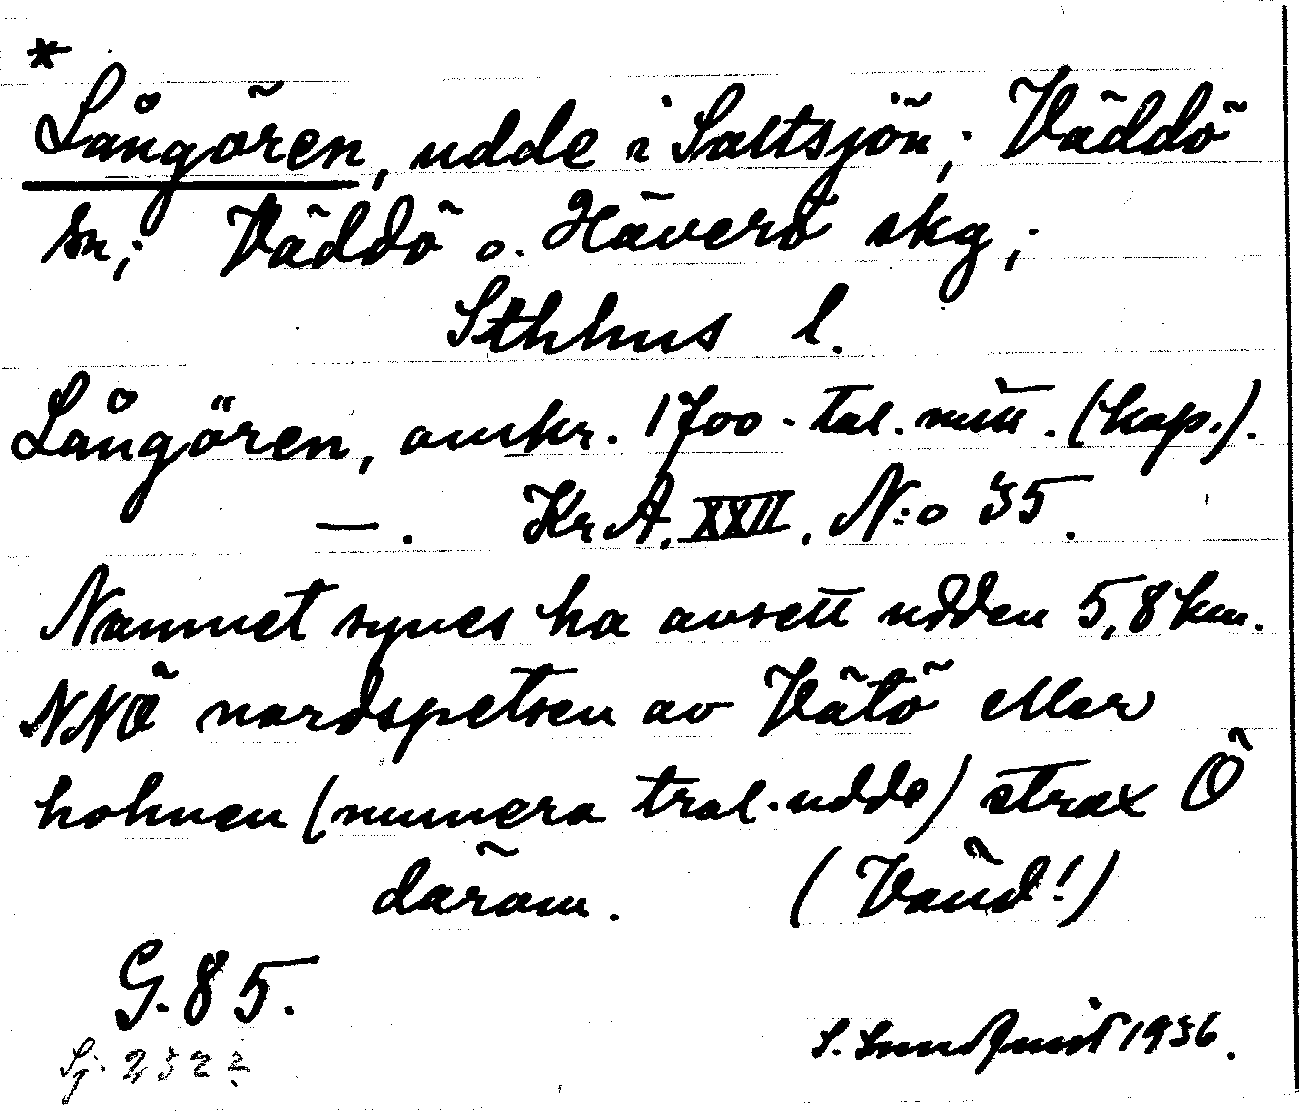 *
Långören, udde i Saltsjön; Väddö
sn; Väddö o. Häverö skg;
Sthlms l.
Långören, omkr. 1700-tal. mitt. (kop.).
—. Kr A. XXII. N:o 35.
Namnet synes ha avsett udden 5,8 km.
NNÖ nordspetsen av Vätö eller
holmen (numera trol. udde) strax Ö
därom. (Vänd!)
G. 85.
Sj. 2322
S. Sundquist 1936.